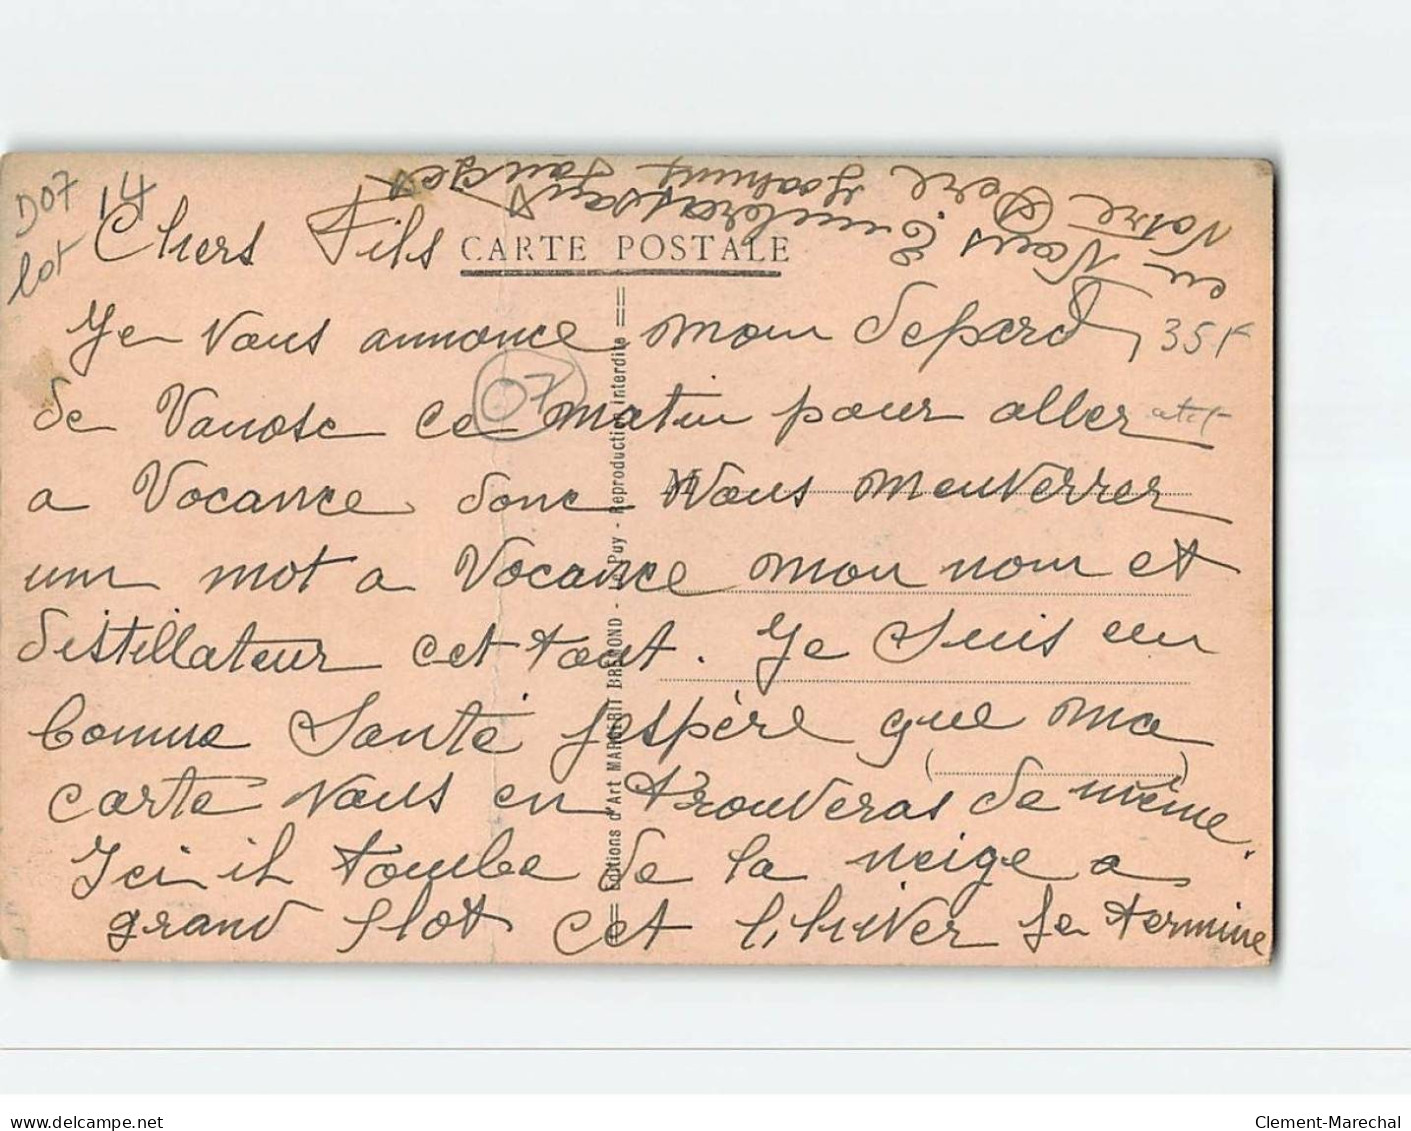 D07
lot
14
Chers Fils
CARTE POSTALE
Je Vous annonce mon depard
35F
de Vanosc ce matin pour aller
07
a Vocance donc Vous menverrer
un mot a Vocance mon nom et
distillateur cet tout. Je Suis en
bonne Santé j'espère que ma
carte Vous en trouveras de même
Ici il tombe de la neige a
grand flot cet l'hiver Je termine
en Vous Embrassant
Votre Père
Editions d'Art MARGERIT BREMOND - Le Puy - Reproduction interdite
delcampe.net
Clement-Marechal